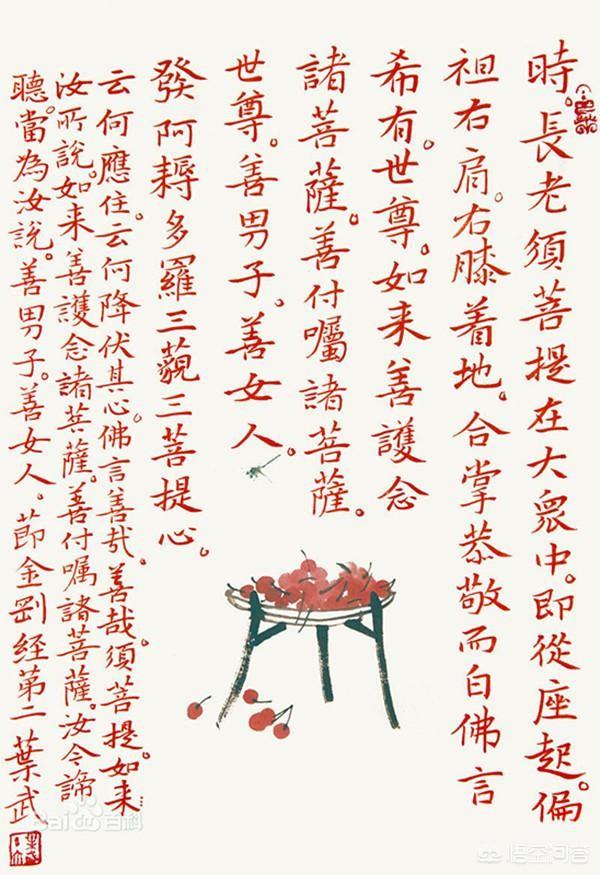 時。長老須菩提在大眾中。即從座起。偏
袒右肩。右膝着地。合掌恭敬而白佛言
希有。世尊。如来善護念
諸菩薩。善付囑諸菩薩。
世尊。善男子。善女人。
發阿耨多羅三藐三菩提心。
云何應住。云何降伏其心。佛言善哉。善哉。須菩提。如来…
汝所說。如来善護念諸菩薩。善付嘱諸菩薩。汝今諦
聽。當為汝說。善男子。善女人。莭金剛经第二葉武
Bai百科
悟空问答